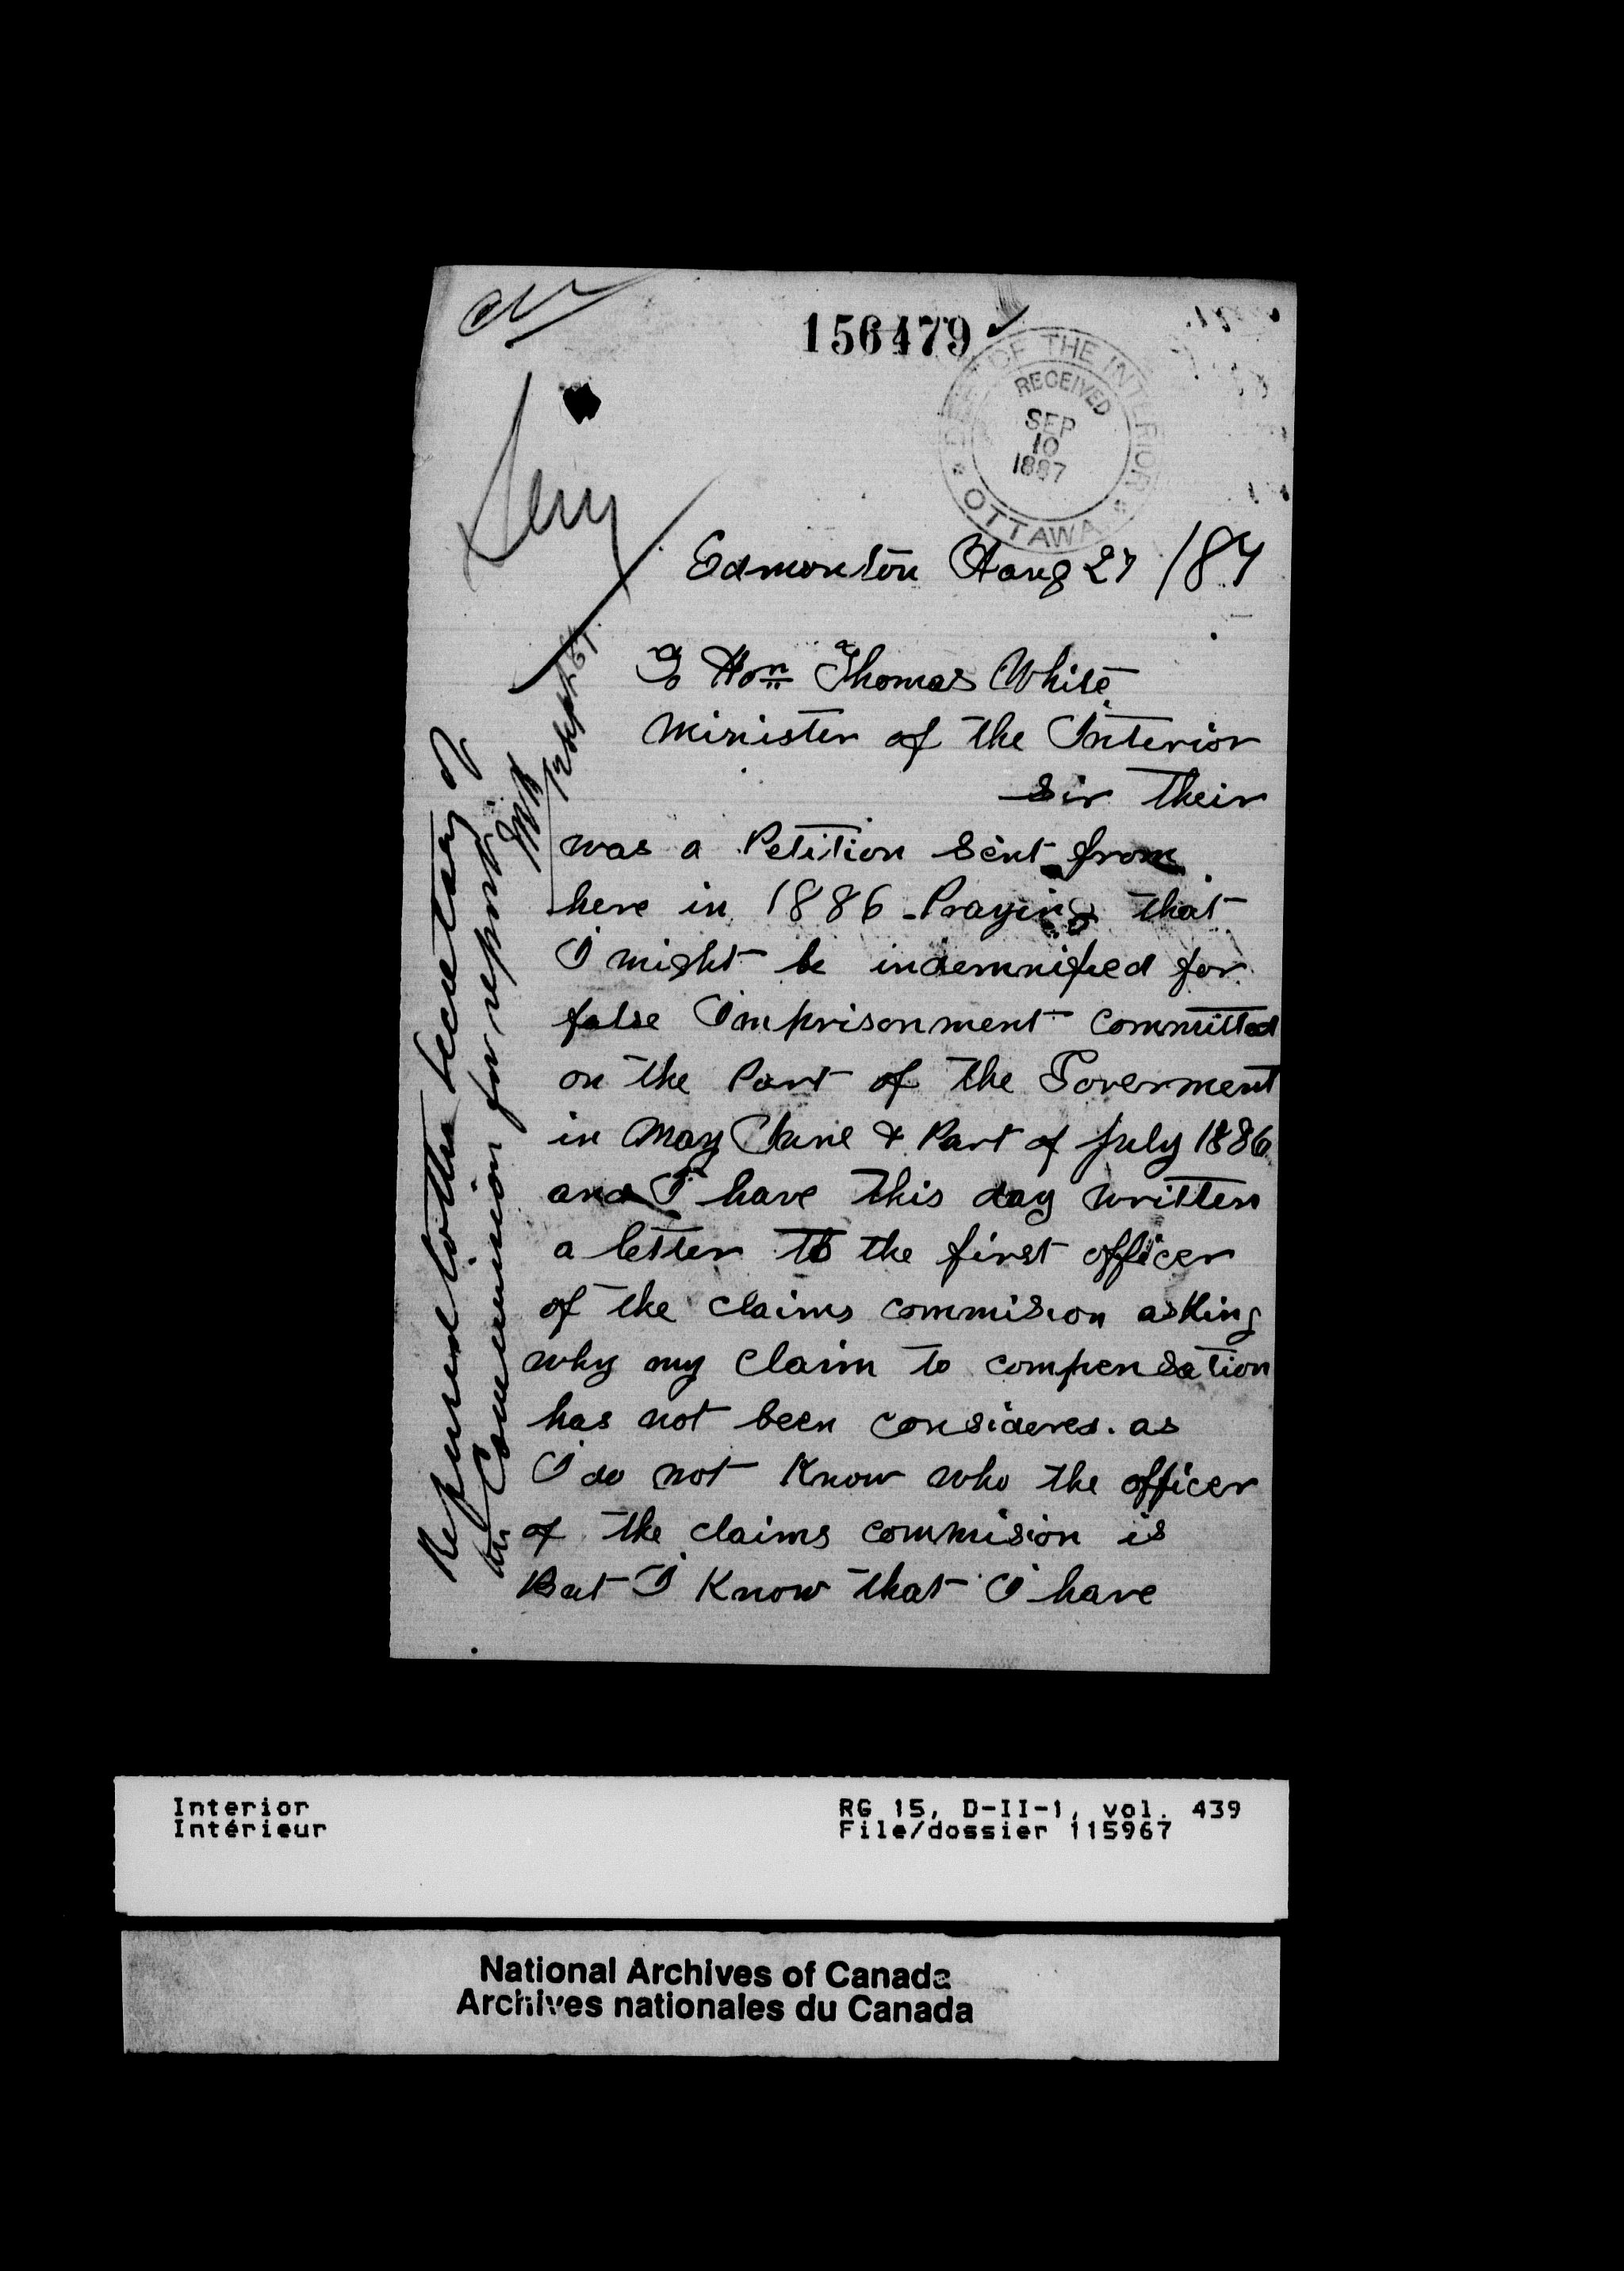 156479
DEPT OF THE INTERIOR
RECEIVED
SEP
10
1887
OTTAWA
Edmonton Aaug 27 /87
To Honn Thomas White
Minister of the Interior
Sir Their
was a Petition Sent from
here in 1886 Praying that
I might be indemnified for
false Imprisonment committed
on the Part of the Goverment
in May June & Part of July 1886
and I have this day written
a letter to the first officer
of the claims commision asking
why my Claim to compensation
has not been considered. as
I do not Know who the officer
of the claims commision is
But I Know that I have
Referred to the Secretary of
the Commission for report
Interior
Intérieur
RG 15, D-II-1, vol. 439
File/dossier 115967
National Archives of Canada
Archives nationales du Canada